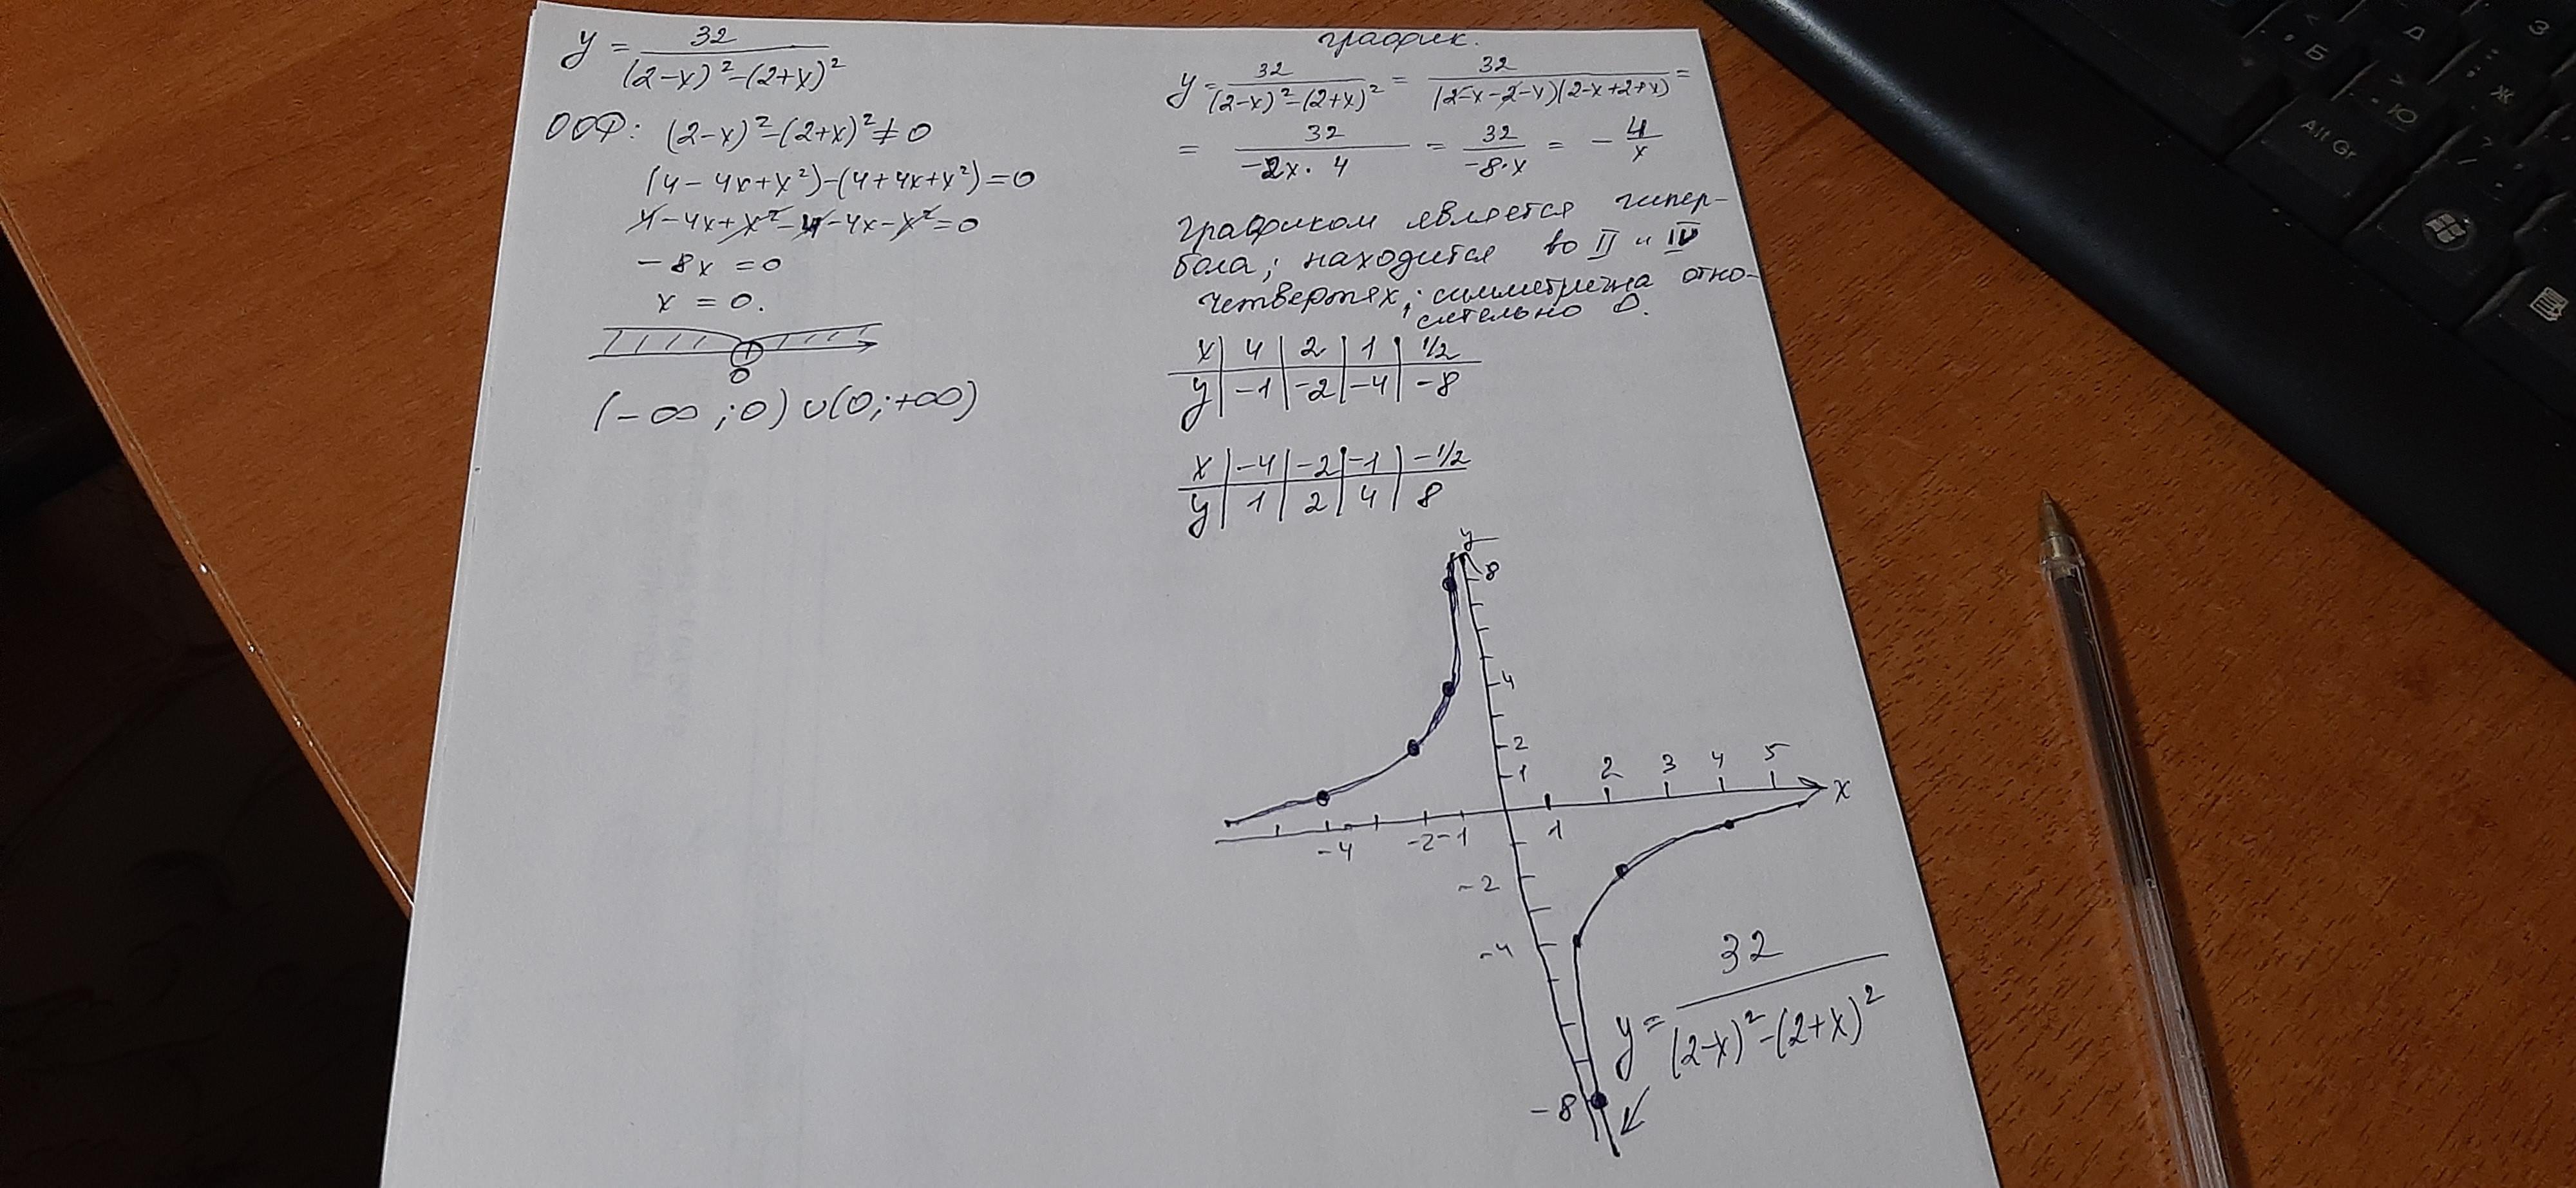 y = 32/((2-x)²-(2+x)²)
ООФ: (2-x)²-(2+x)²≠0
(4-4x+x²)-(4+4x+x²)=0
4-4x+x²-4-4x-x²=0
-8x=0
x=0.
0
(-∞;0)∪(0;+∞)
график.
y = 32/((2-x)²-(2+x)²) = 32/((2-x-2-x)(2-x+2+x)) =
= 32/(-2x·4) = 32/(-8·x) = -4/x
Графиком является гипер-
бола; находится во II и IV
четвертях; симметрична отно-
сительно O.
x | 4 | 2 | 1 | 1/2
y | -1 | -2 | -4 | -8
x | -4 | -2 | -1 | -1/2
y | 1 | 2 | 4 | 8
y
8
4
2
1
2 3 4 5
x
-4 -2 -1 1
-2
-4
-8
y = 32/((2-x)²-(2+x)²)
Б
Д
З
Ж
Ю
Э
Alt Gr